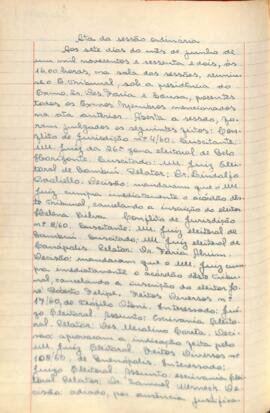 Ata da sessão ordinária
Aos sete dias do mês de junho de
um mil novecentos e sessenta e dois, às
14.00 horas, na sala das sessões, reuniu-
se o Tribunal, sob a presidência do
Exmo. Sr. Des. Faria e Sousa, presentes
todos os Exmos. Membros mencionados
na ata anterior. Aberta a sessão, fo-
ram julgados os seguintes feitos: Con-
flito de Jurisdição nº 4/60. Suscitante:
MM. Juiz da 26ª zona eleitoral de Belo
Horizonte. Suscitado: MM. Juiz Elei-
toral de Bambuí. Relator: Dr. Lindolfo
Decisão: mandaram que o M
Juiz cumpra imediatamente o acórdão des-
te Tribunal, cancelando a inscrição do eleitor
Silva. Conflito de Jurisdição
nº 8/60. Suscitante: MM. Juiz eleitoral de
Bambuí. Suscitado: MM. Juiz eleitoral de
Canápolis. Relator: Dr. Faria Alvim.
Decisão: mandaram que o MM. Juiz cum-
pra imediatamente o acórdão dêste Tribu-
nal, cancelando a inscrição do eleitor Jo-
Felipe. Feitos Diversos nº
17/60, de Teófilo Otoni. Interessado: Juí-
zo Eleitoral. Assunto: Escrivania Eleito-
ral. Relator: Des. Deci-
são: aprovaram a indicação feita pelo
MM. Juiz Eleitoral. Feitos Diversos nº
108/60, de Interessado:
Juízo Eleitoral. Assunto: escrivania elei-
toral. Relator: Dr. Samuel Werneck. De-
cisão: adiado, por ausência justifica-